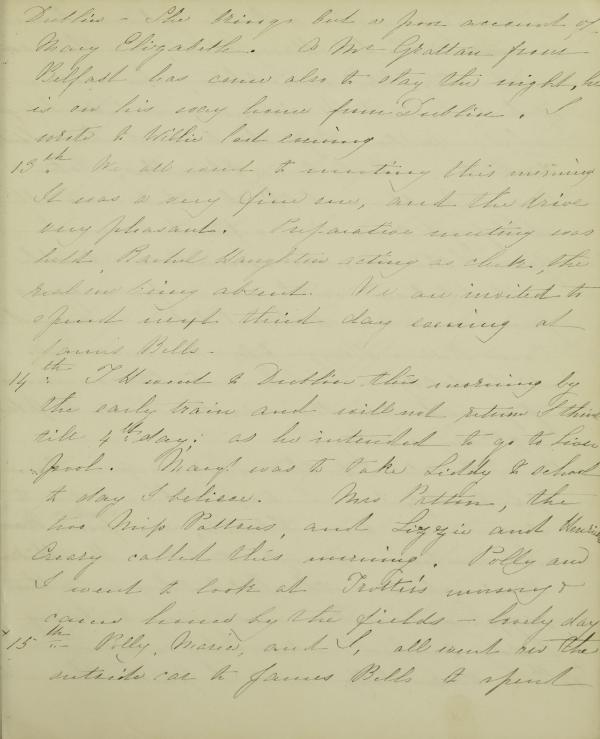 Dublin - She brings but a poor account of
Mary Elizabeth. A Mr Grattan from
Belfast has come also to stay the night, he
is on his way home from Dublin. I
wrote to Willie last evening
13th. We all went to meeting this morning
It was a very fine one, and the drive
very pleasant. Preparative meeting was
held, Rachel Haughton acting as clerk, the
real one being absent. We are invited to
spend next third day evening at
James Bells -
14th. T H went to Dublin this morning by
the early train and will not return I think
till 4th day; as he intended to go to Liver
pool. Mary was to take Liddy to school
to day I believe. Mrs Patten, the
two Miss Pattens, and Lizzie and
Creary called this morning. Polly and
I went to look at Trotter's nursery &
came home by the fields - lovely day
15th - Polly, Maria, and I, all went on the
outside car to James Bells to spend